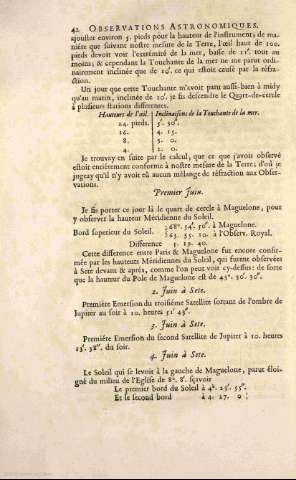 42. OBSERVATIONS ASTRONOMIQUES.
ajouster environ 5. pieds pour la hauteur de l'instrument; de ma-
niére que suivant nostre mesure de la Terre, l'œil haut de 100.
pieds devoit voir l'extrémité de la mer, basse de 11'. tout au
moins; & cependant la Touchante de la mer ne me parut ordi-
nairement inclinée que de 10'. ce qui estoit causé par la réfra-
ction.
Un jour que cette Touchante m'avoit paru aussi-bien à midy
qu'au matin, inclinée de 10'. je fis descendre le Quart-de-cercle
à plusieurs stations différentes.
Hauteurs de l'œil. Inclinaisons de la Touchante de la mer.
24. pieds. 5'. 30".
16. 4. 15.
8. 3. 0.
4. 2. 0.
Je trouvay en suite par le calcul, que ce que j'avois observé
estoit entiérement conforme à nostre mesure de la Terre; d'où je
jugeay qu'il n'y avoit eû aucun mélange de réfraction aux Obser-
vations.
Premier Juin.
Je fis porter ce jour là le quart de cercle à Maguelone, pour
y observer la hauteur Méridienne du Soleil.
Bord superieur du Soleil. 68°. 54'. 50". à Maguelone.
63. 35. 10. à l'Observ. Royal.
Difference 5. 19. 40.
Cette difference entre Paris & Maguelone fut encore confir-
mée par les hauteurs Méridiennes du Soleil, qui furent observées
à Sete devant & aprés, comme l'on peut voir cy-dessus: de sorte
que la hauteur du Pole de Maguelone est de 43°. 30'. 30".
2. Juin à Sete.
Premiére Emersion du troisiéme Satellite sortant de l'ombre de
Jupiter au soir à 10. heures 51' 43".
3. Juin à Sete.
Premiére Emersion du second Satellite de Jupiter à 10. heures
23'. 38". du soir.
4. Juin à Sete.
Le Soleil qui se levoit à la gauche de Maguelone, parut éloi-
gné du milieu de l'Eglise de 8°. 8'. sçavoir
Le premier bord du Soleil à 4h. 23'. 55".
Et le second bord à 4. 27. 0